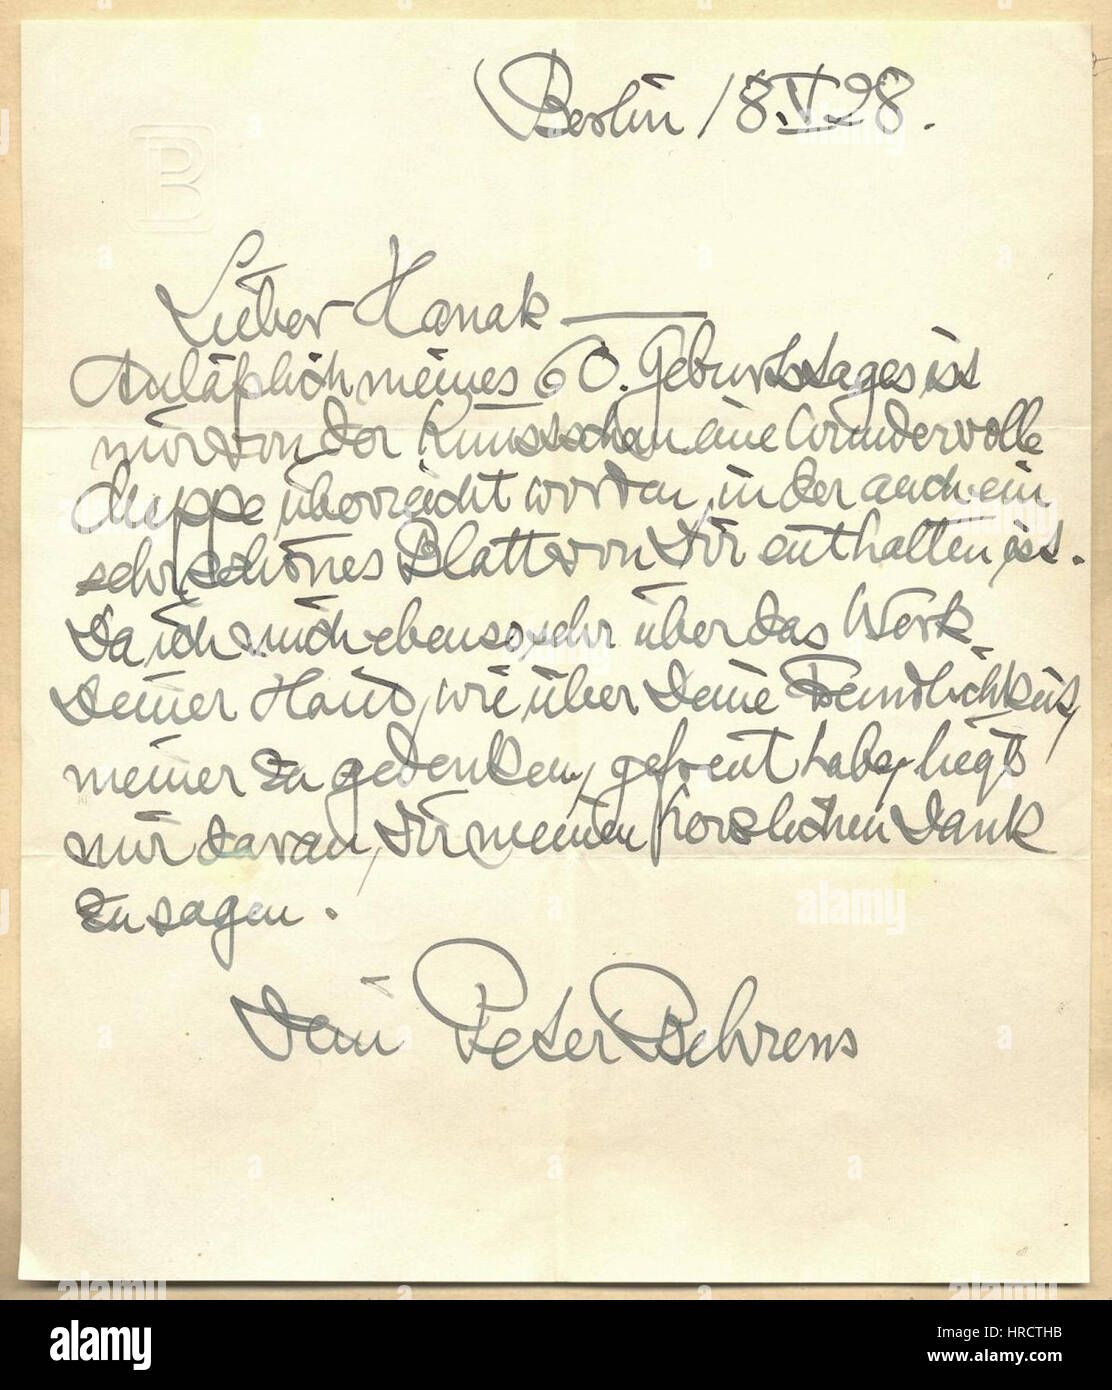 Berlin 18.V.28.
B
Lieber Hanak
Anläßlich meines 60. Geburtstages ist
mir von der Kunstschau eine wundervolle
Mappe überreicht worden, in der auch ein
sehr schönes Blatt von Dir enthalten ist.
Da ich mich ebenso sehr über das Werk
Deiner Hand, wie über Deine Freundlichkeit,
meiner zu gedenken, gefreut habe, liegt
mir daran, Dir meinen herzlichen Dank
zu sagen.
Dein Peter Behrens
alamy
alamy
Image ID: HRCTHB
www.alamy.com